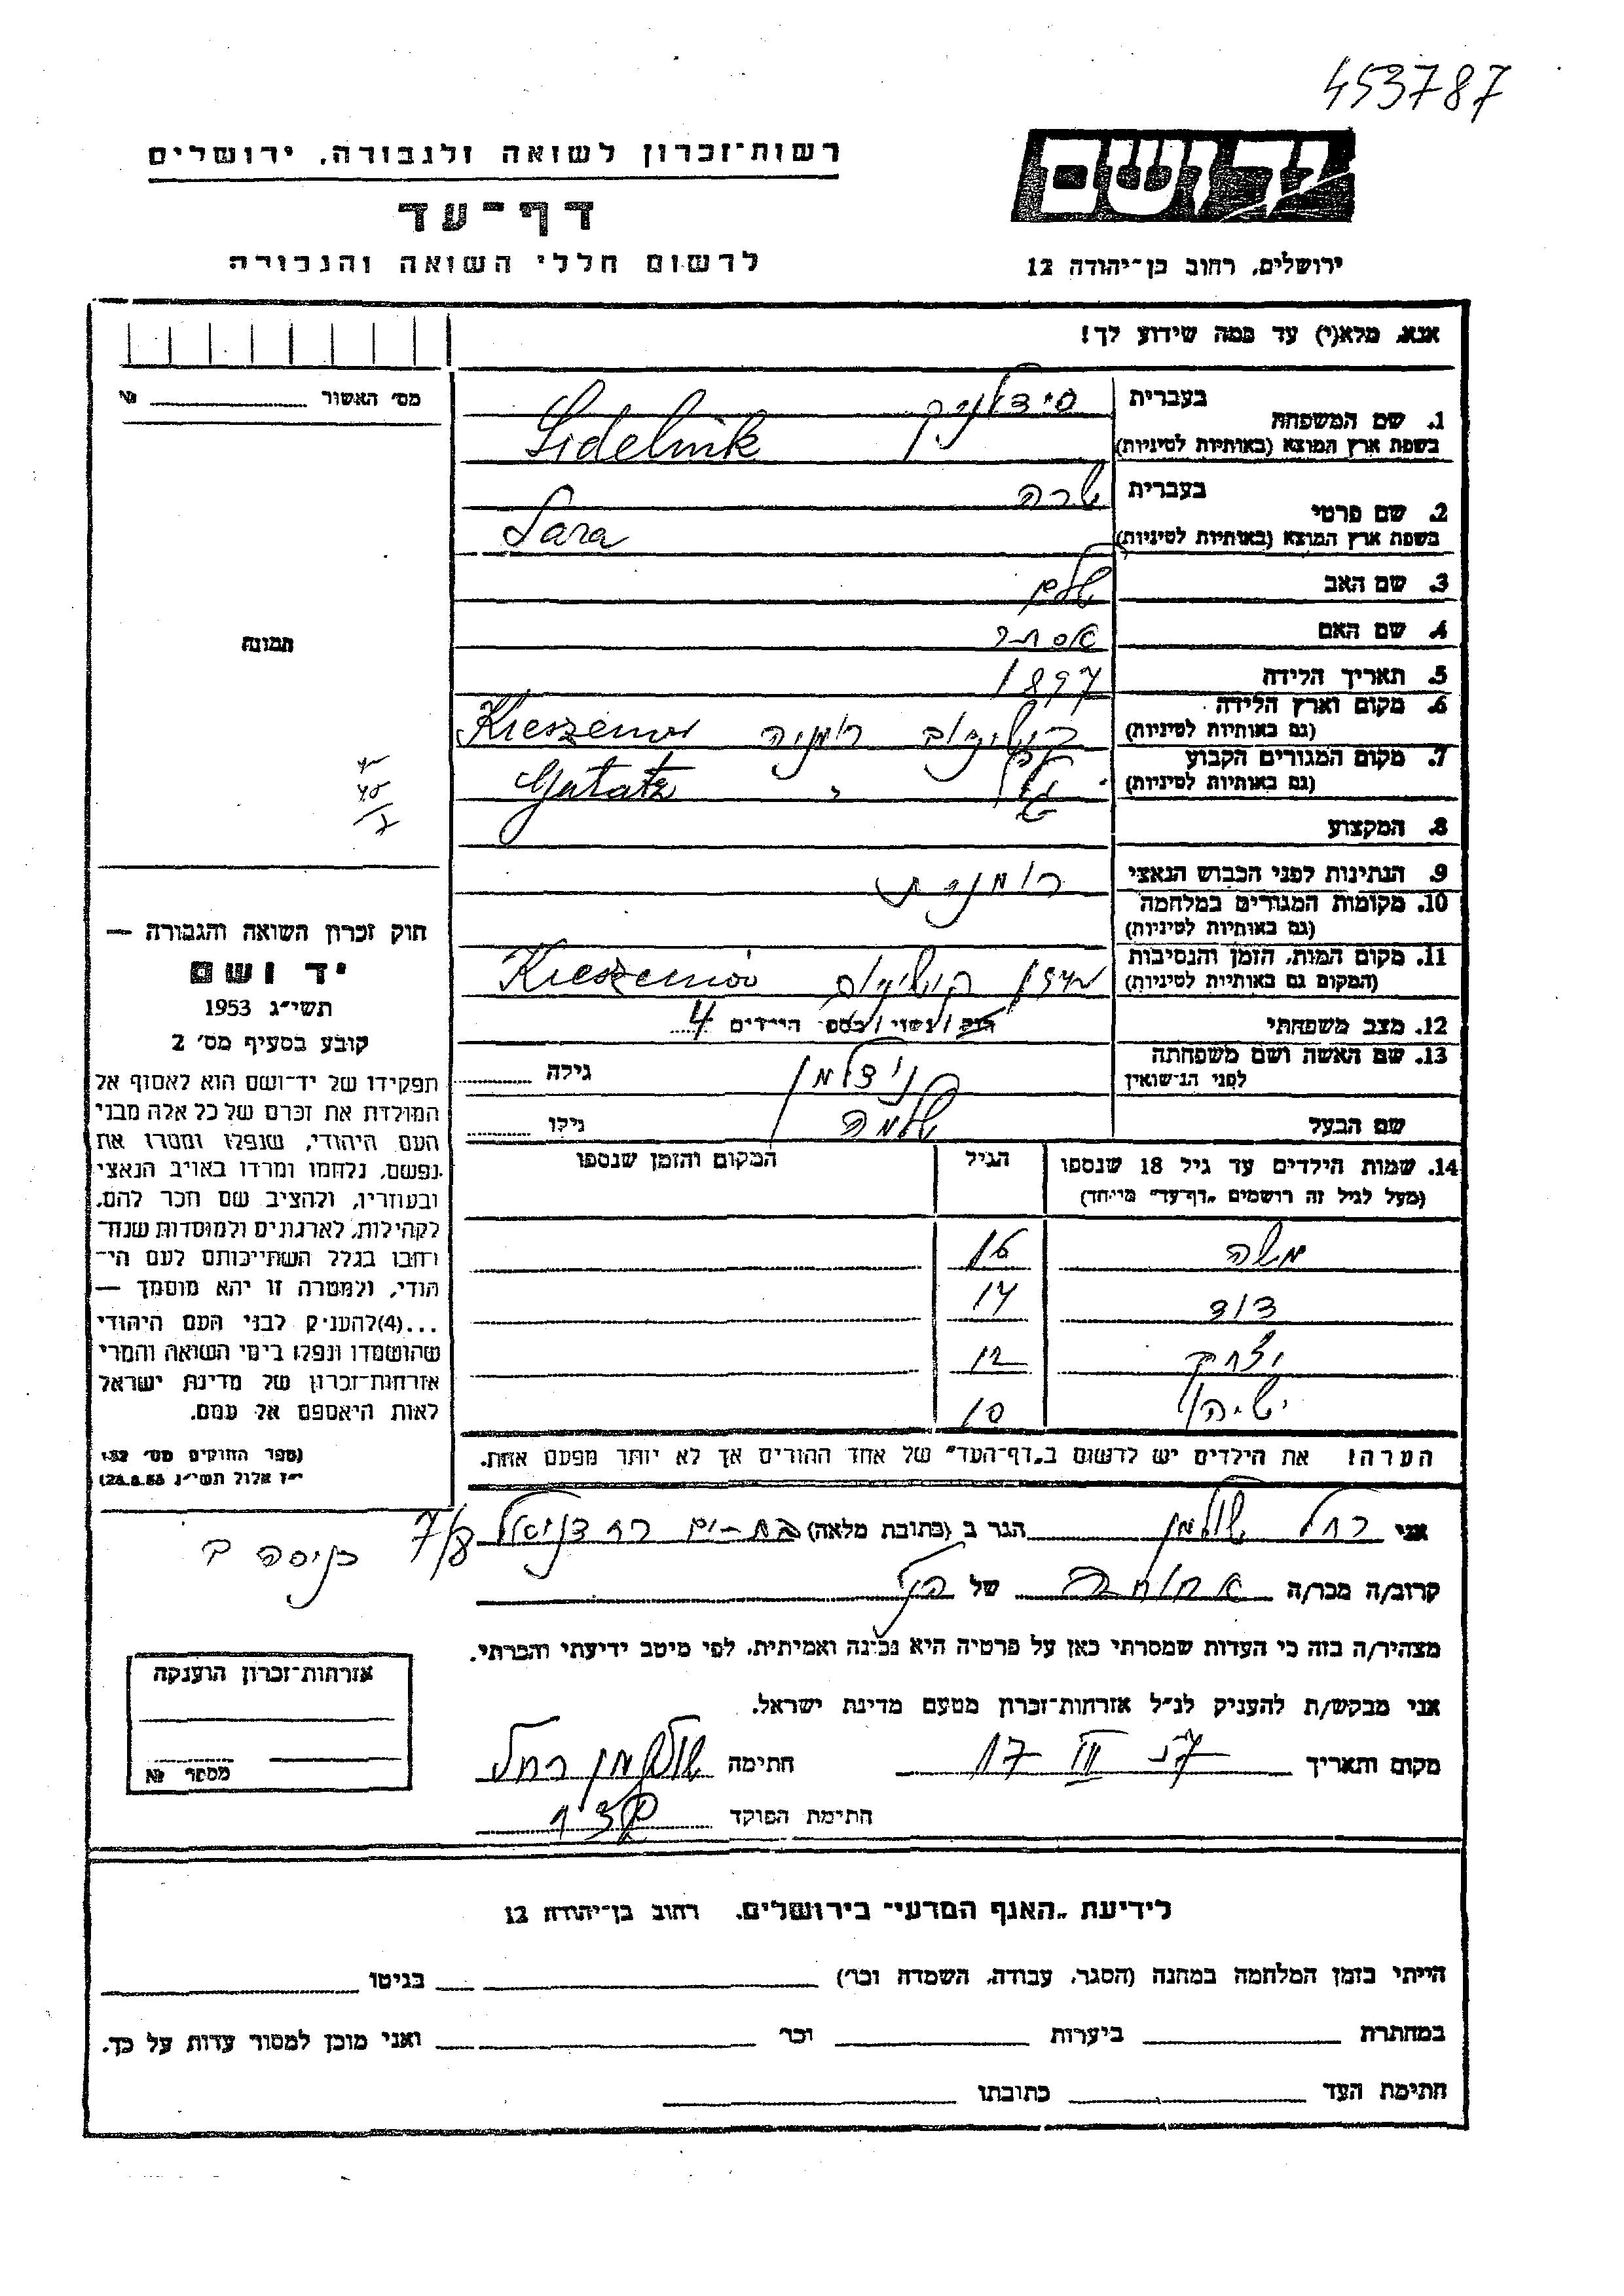 453787
יד ושם
רשות־זכרון לשואה ולגבורה, ירושלים
דף־עד
לרשום חללי השואה והגבורה
ירושלים, רחוב בן־יהודה 12
אנא, מלא(י) עד כמה שידוע לך!
מס' האשור №
תמונה
1. שם המשפחה
בעברית סידלניק
בשפת ארץ המוצא (באותיות לטיניות) Sidelnik
2. שם פרטי
בעברית שרה
בשפת ארץ המוצא (באותיות לטיניות) Sara
3. שם האב שלום
4. שם האם אסתר
5. תאריך הלידה 1897
6. מקום וארץ הלידה
(גם באותיות לטיניות) קישינוב רומניה Kieszeniow
7. מקום המגורים הקבוע
(גם באותיות לטיניות)
8. המקצוע
9. הנתינות לפני הכבוש הנאצי רומנית
10. מקומות המגורים במלחמה
(גם באותיות לטיניות)
11. מקום המות, הזמן והנסיבות
(המקום גם באותיות לטיניות) קישינוב Kieszeniów
12. מצב משפחתי רוק/נשוי/מספר הילדים 4
13. שם האשה ושם משפחתה
לפני הנישואין גילה
שם הבעל שלמה גילו
14. שמות הילדים עד גיל 18 שנספו
(מעל לגיל זה רושמים „דף־עד" מיוחד)
הגיל
המקום והזמן שנספו
משה 16
דוד 14
יצחק 12
ישיהו 10
הערה! את הילדים יש לרשום ב„דף־העד" של אחד ההורים אך לא יותר מפעם אחת.
חוק זכרון השואה והגבורה —
יד ושם
תשי״ג 1953
קובע בסעיף מס' 2
תפקידו של יד־ושם הוא לאסוף אל
המולדת את זכרם של כל אלה מבני
העם היהודי, שנפלו ומסרו את
נפשם, נלחמו ומרדו באויב הנאצי
ובעוזריו, ולהציב שם וזכר להם,
לקהילות, לארגונים ולמוסדות שנח־
רבו בגלל השתייכותם לעם הי־
הודי, ולמטרה זו יהא מוסמך —
...(4)להעניק לבני העם היהודי
שהושמדו ונפלו בימי השואה והמרי
אזרחות־זכרון של מדינת ישראל
לאות היאספם אל עמם.
(ספר החוקים מס' 132
י״ז אלול תשי״ג 28.8.53)
אני רחל שולמן הגר ב (כתובת מלאה) בת-ים רח דניאל 7/8
כניסה ב
קרוב/ה מכר/ה אחותה של הנ״ל
מצהיר/ה בזה כי העדות שמסרתי כאן על פרטיה היא נכונה ואמיתית, לפי מיטב ידיעתי והכרתי.
אני מבקש/ת להעניק לנ״ל אזרחות־זכרון מטעם מדינת ישראל.
מקום ותאריך 17 III חתימה שולמן רחל
חתימת הפוקד
אזרחות־זכרון הוענקה
מספר №
לידיעת „האגף המדעי" בירושלים, רחוב בן־יהודה 12
הייתי בזמן המלחמה במחנה (הסגר, עבודה, השמדה וכו') בגיטו
במחתרת ביערות וכו' ואני מוכן למסור עדות על כך.
חתימת העד כתובתו